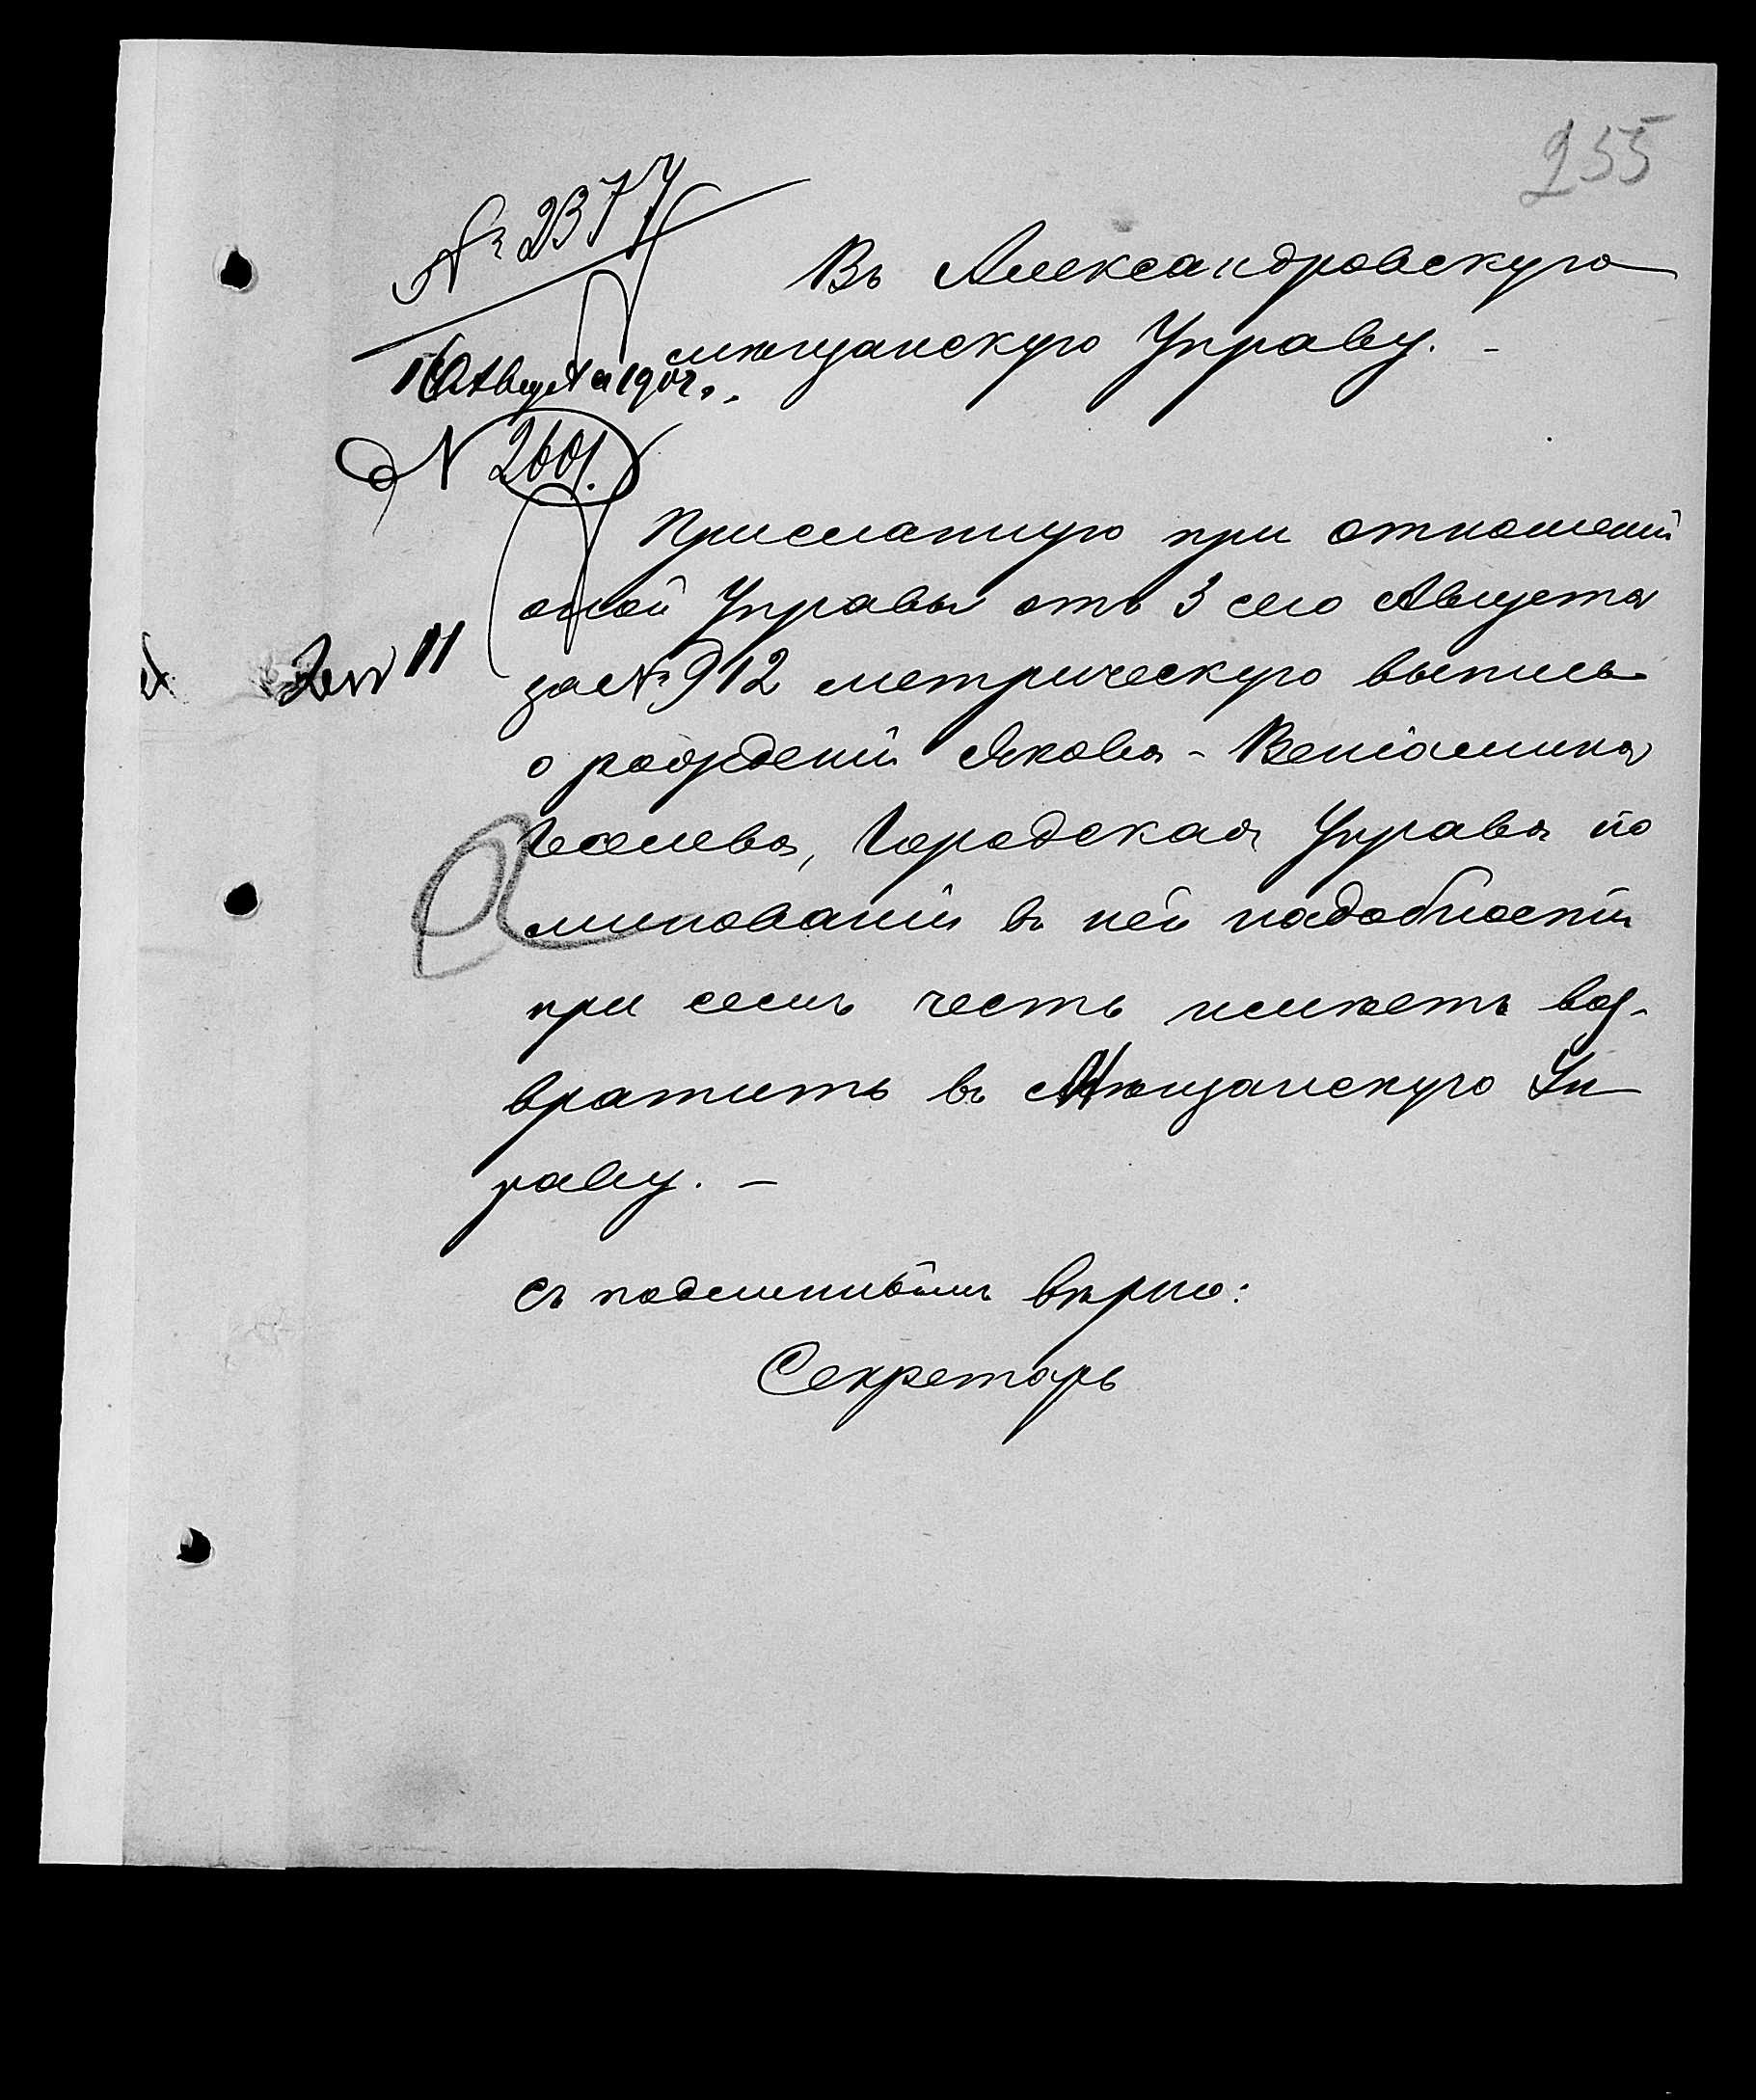 255
№ 2377
Въ Александровскую
мѣщанскую Управу. -
Августа 190
№ 2601.
Присланную при отношеніи
оной Управы отъ 3 сего Августа
за № 912 метрическую выпись
о рожденіи Якова - Веніамина
Іоселева, Городская Управа по
минованіи въ ней надобности
при семъ честь имѣетъ воз-
вратить въ Мѣщанскую Уп
раву. -
Съ подлиннымъ вѣрно:
Секретарь